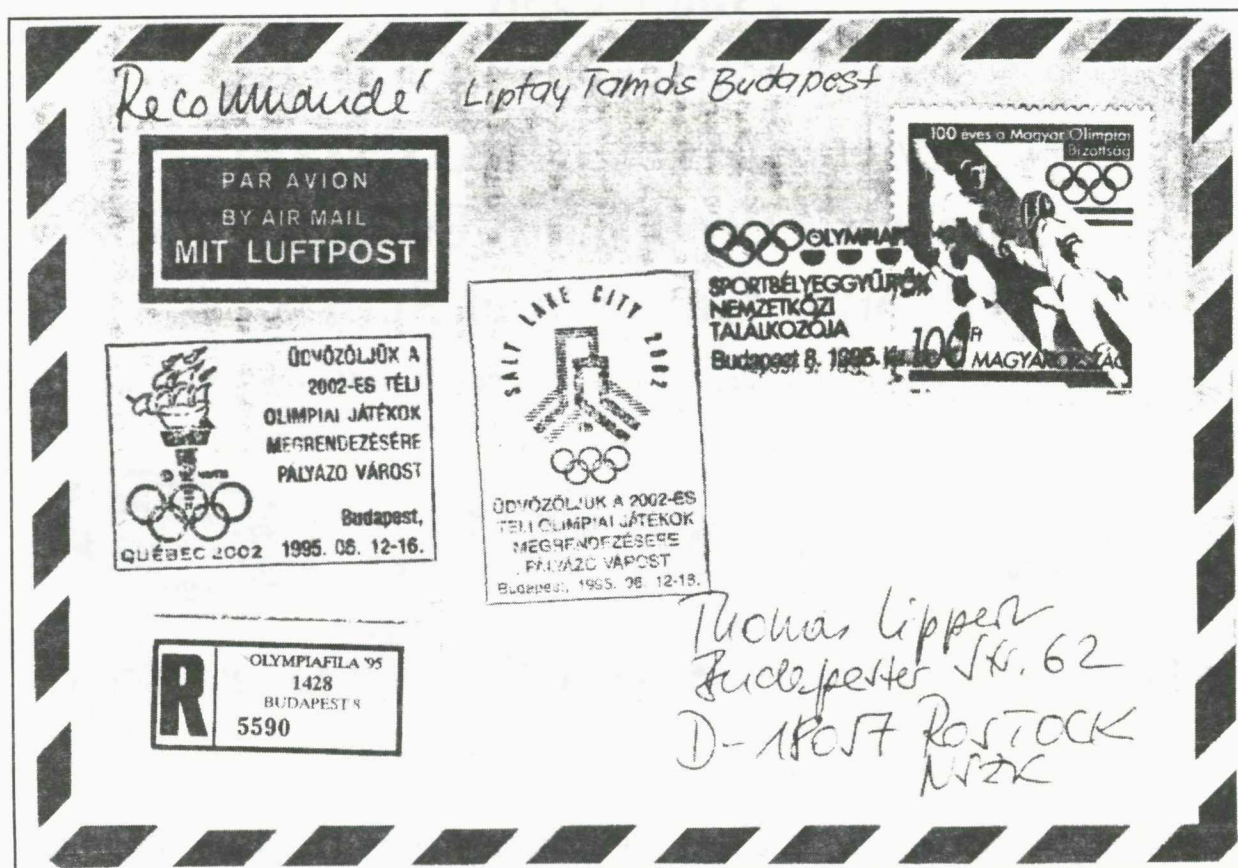 Recommandé Liptay Tamás Budapest
PAR AVION
BY AIR MAIL
MIT LUFTPOST
100 éves a Magyar Olimpiai
Bizottság
OLYMPIAFI
SPORTBÉLYEGGYŰJTŐK
NEMZETKÖZI
TALÁLKOZÓJA
Budapest 8. 1995.
100 Ft
MAGYARORSZÁG
ÜDVÖZÖLJÜK A
2002-ES TÉLI
OLIMPIAI JÁTÉKOK
MEGRENDEZÉSÉRE
PÁLYÁZÓ VÁROST
Budapest,
QUÉBEC 2002 1995. 06. 12-16.
SALT LAKE CITY 2002
ÜDVÖZÖLJÜK A 2002-ES
TÉLI OLIMPIAI JÁTÉKOK
MEGRENDEZÉSÉRE
PÁLYÁZÓ VÁROST
Budapest, 1995. 06. 12-16.
R
OLYMPIAFILA '95
1428
BUDAPEST 8
5590
Thomas Lippert
Budapester Str. 62
D-18057 ROSTOCK
NSZK